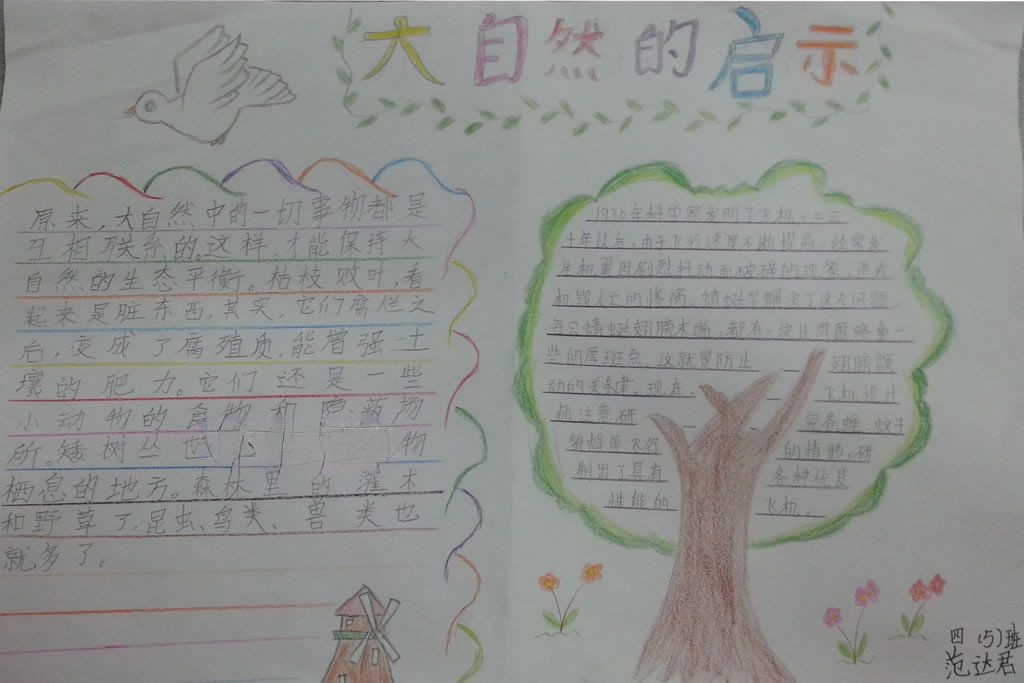 大自然的启示
原来,大自然中的一切事物都是
互相联系的。这样,才能保持大
自然的生态平衡。枯枝败叶,看
起来是脏东西,其实,它们腐烂之
后,变成了腐殖质,能增强土
壤的肥力。它们还是一些
小动物的食物和隐蔽场
所。矮树丛也 物
栖息的地方。森林里的灌木
和野草了,昆虫、鸟类、兽类也
就多了。
1930年科学家发明了飞机。二三
十年以后,由于飞行速度不断提高,经常发
生机翼因剧烈抖动而破碎的现象,造成
机毁人亡的惨祸。蜻蜓早解决了这个问题,
每只蜻蜓翅膀末端,都有一块比周围略重一
些的厚斑点,这就是防止 翅膀颤
动的关键。现在, 飞机设计
师注意研 究苍蝇、蚊子
蜜蜂等飞行 的情形,研
制出了具有 各种优良
性能的 飞机。
四(5)班
范达君